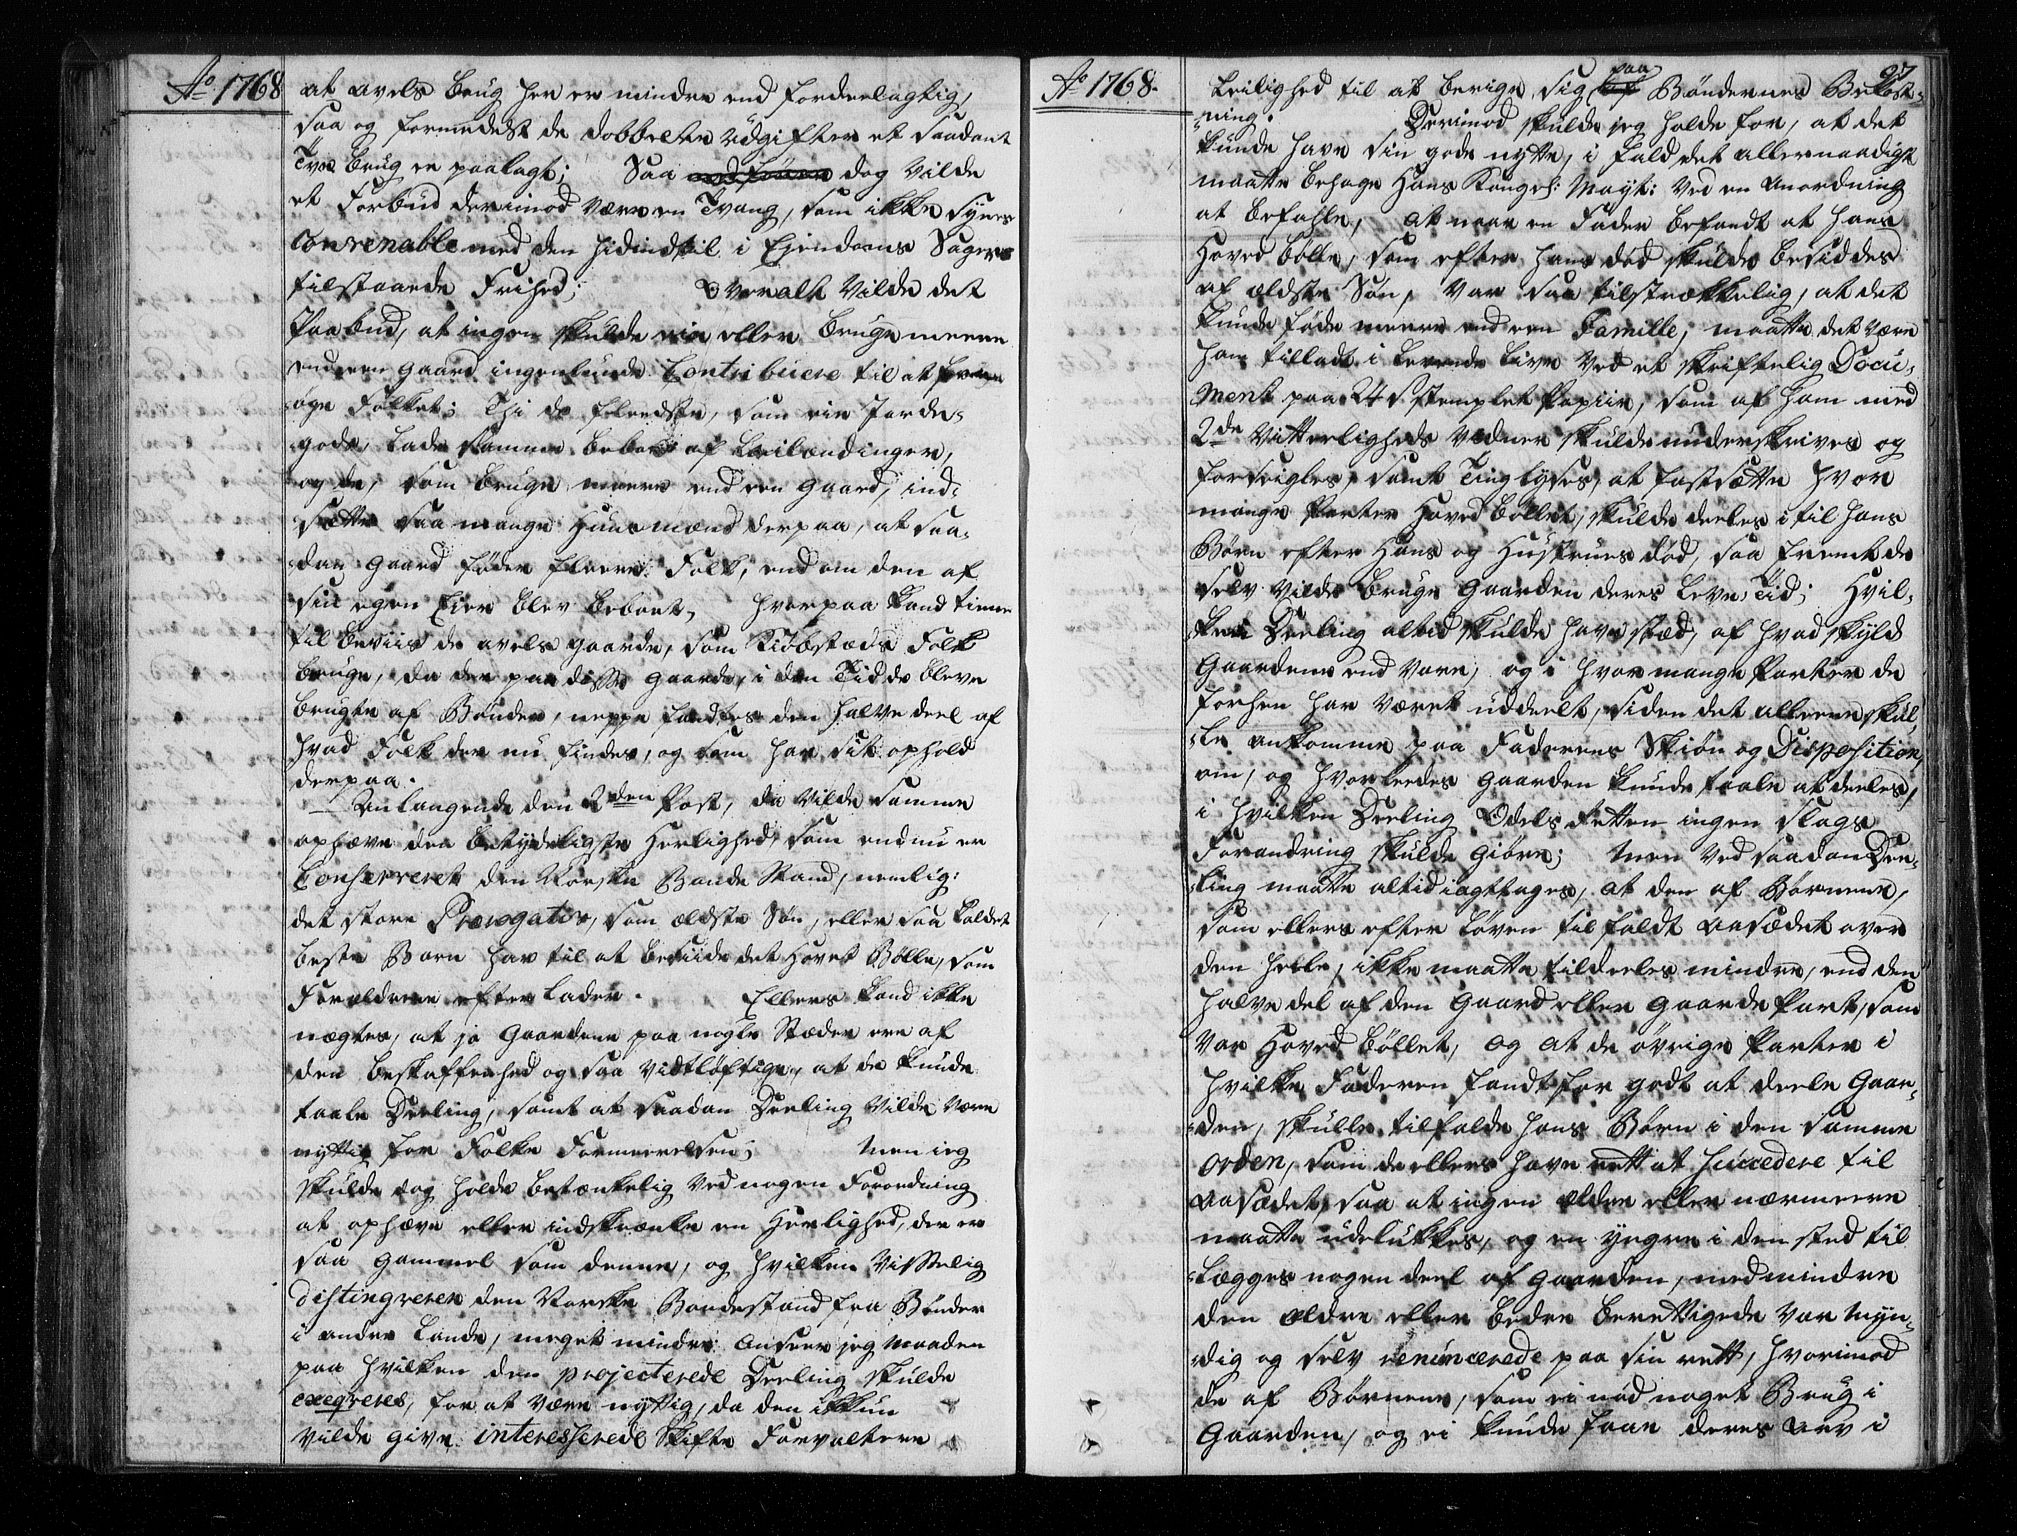 Ao 1768
at avels brug her er mindre end fordeelagtig,
saa og formedelst de dobbelte udgifter et saadant
Tve brug er paalagt; Saa dog vilde
et Forbud derimod være en Tvang, som ikke synes
convenable med den hidindtil i Ejendoms Sager
tilstaaede Frihed; Overalt vilde det
Paabud, at ingen skulde eie eller bruge meere
end een gaard ingenlunde Contribuere til at form
øge Folket; Thi de fleeste, som eie Jorde-
gods, lade samme beboe af Leilændinger,
og de, som bruge meere end een gaard, ind-
sætte saa mange Huusmænd derpaa, at saa-
dan gaard føder fleere Folk, end om den af
sin egen Eier blev beboet, hvorpaa kand tiene
til beviis de avels gaarde, som Kiøbstæds Folk
bruge, da der paa disse gaarde, i den Tid de bleve
brugte af Bønder, neppe fandtes den halve deel af
hvad Folk der nu findes, og som har sit ophold
derpaa.
Anlangende den 2den Post, da vilde samme
ophæve den betydeligste Herlighed, som endnu er
Conserveret den Norske Bonde Stand, nemlig:
det store Prærogativ, som ældste Søn, eller saa kaldet
beste Barn har til at besidde det Hovet Bølle, som
Forældrene efterlader. Ellers kand ikke
nægtes, at jo Gaardene paa nogle Stæder ere af
den beskaffenhed og saa vidtløftige, at de kunde
taale Deeling, samt at saadan Deeling vilde være
nyttig for Folke Formeerelsen; Men ieg
skulde dog holde betænkelig ved nogen Forordning
at ophæve eller indskrænke en Herlighed, der er
saa gammel som denne, og hvilken visselig
distingverer den Norske Bondestand fra Bønder
i andre Lande, meget mindre anseer jeg Maaden
paa hvilken den projecterede Deeling skulde
exeqveres, for at være nyttig, da den ikkun
vilde give interesserede Skifte Forvaltere
Ao 1768.
97
Leilighed til at berige sig paa Bøndernes Bekost-
ning. Derimod skulde jeg holde for, at det
kunde have sin gode nytte, i fald det allernaadigst
maatte behage Hans Kongel: Mayt: ved en Anordning
at befahle, at naar en Fader befandt at hans
Hoved bølle, som efter hans død skulde besiddes
af ældste Søn, var saa tilstrækkelig, at det
kunde føde meere end een Famille, maatte det være
ham tilladt i levende Live ved et skriftelig Docu-
ment paa 24 S stemplet Papiir, som af ham med
2de Vitterligheds vidner skulde underskrives og
forseigles, samt Tinglyses, at fastsætte hvor
mange Parter Hoved bøllet skulde deeles i til hans
Børn efter Hans og Hustrues død, saa fremt de
selv vilde bruge Gaarden deres Leve Tid; Hvil-
ken Deeling altid skulde have stæd, af hvad skyld
Gaardene end vare, og i hvor mange Parter de
forhen har været uddeelt, siden det alleene skul-
le ankomme paa Faderens Skiøn og Disposition
om, og hvorleedes Gaarden kunde taale at deeles,
i hvilken Deeling Odels Retten ingen slags
Forandring skulde giøre; Men ved saadan Dee-
ling maatte altid iagttages, at den af Børnene,
som ellers efter Loven tilfaldt Aasædet over
den heele, ikke maatte tildeeles mindre, end den
halve del af den Gaard eller Gaarde Part, som
var Hoved bøllet, og at de øvrige Parter i
hvilke Faderen fandt for godt at deele Gaar-
den, skulle tilfalde hans Børn i den samme
orden, som de ellers have rett at succedere til
Aasædet, saa at ingen ældre eller nærmeere
maatte udelukkes, og en yngre i den sted til
lægges nogen deel af Gaarden, med mindre
den ældre eller bedre berettigede var myn-
dig og selv renuncerede paa sin rett, hvorimod
de af Børnene, som ei nød noget Brug i
Gaarden, og ei kunde faae deres Arv i